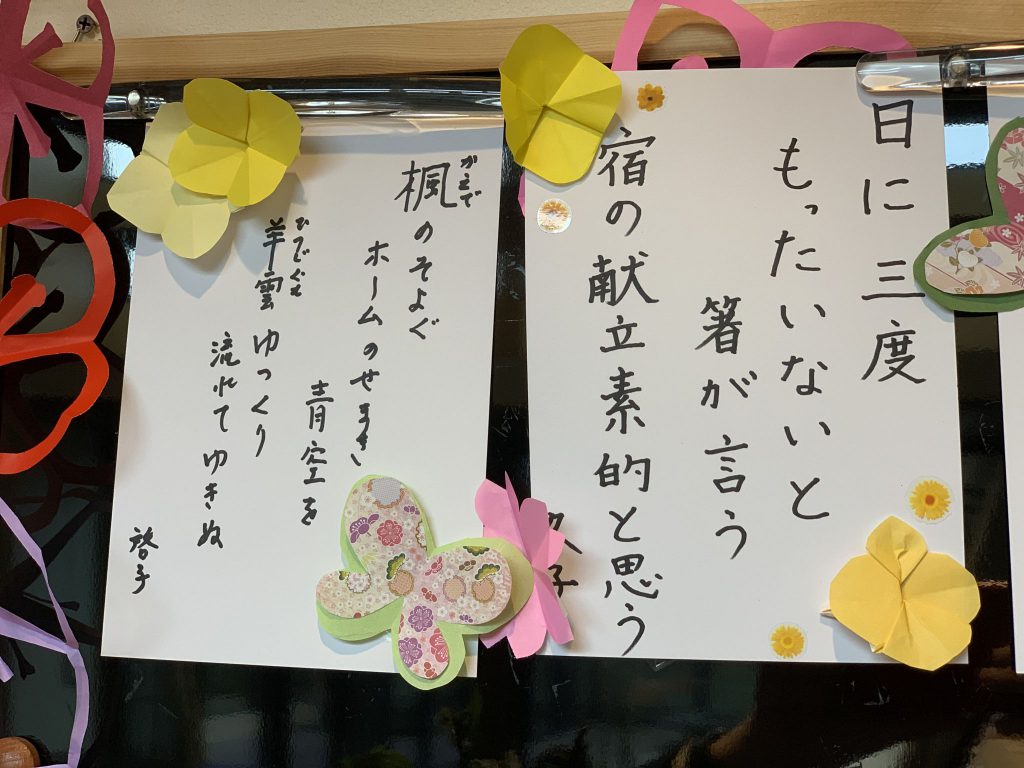 日に三度
もったいないと
箸が言う
宿の献立素的と思う
子
楓のそよぐ
ホームのせまき
青空を
羊雲 ゆっくり
流れてゆきぬ
啓子